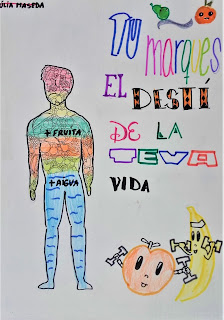 TU
marques
EL DESTÍ
DE LA
TEVA
VIDA
+ FRUITA
+ AIGUA